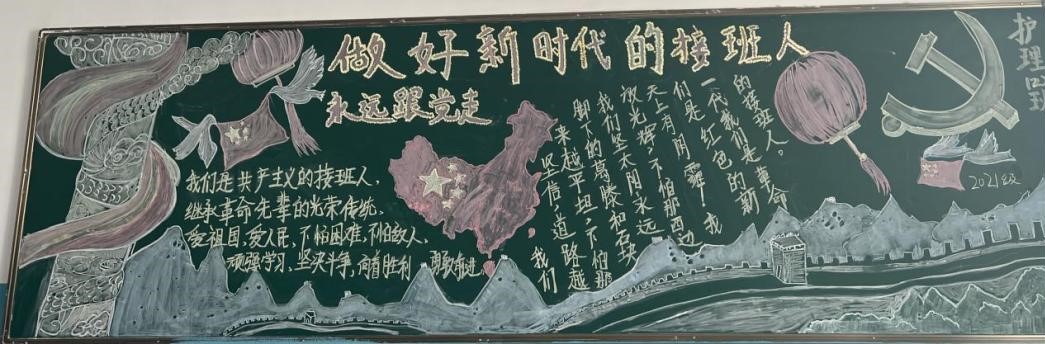 做好新时代的接班人
永远跟党走
我们是共产主义的接班人,
继承革命先辈的光荣传统,
爱祖国,爱人民,不怕困难,不怕敌人,
顽强学习,坚决斗争,向着胜利 勇敢前进
我们
坚信,道路越
来越平坦,不怕那
脚下的葛藤和石块
我们坚太阳永远
放光辉,不怕那西边
天上有阴霾,我
们是红色的新
一代我们是革命
的接班人。
护理
2021级